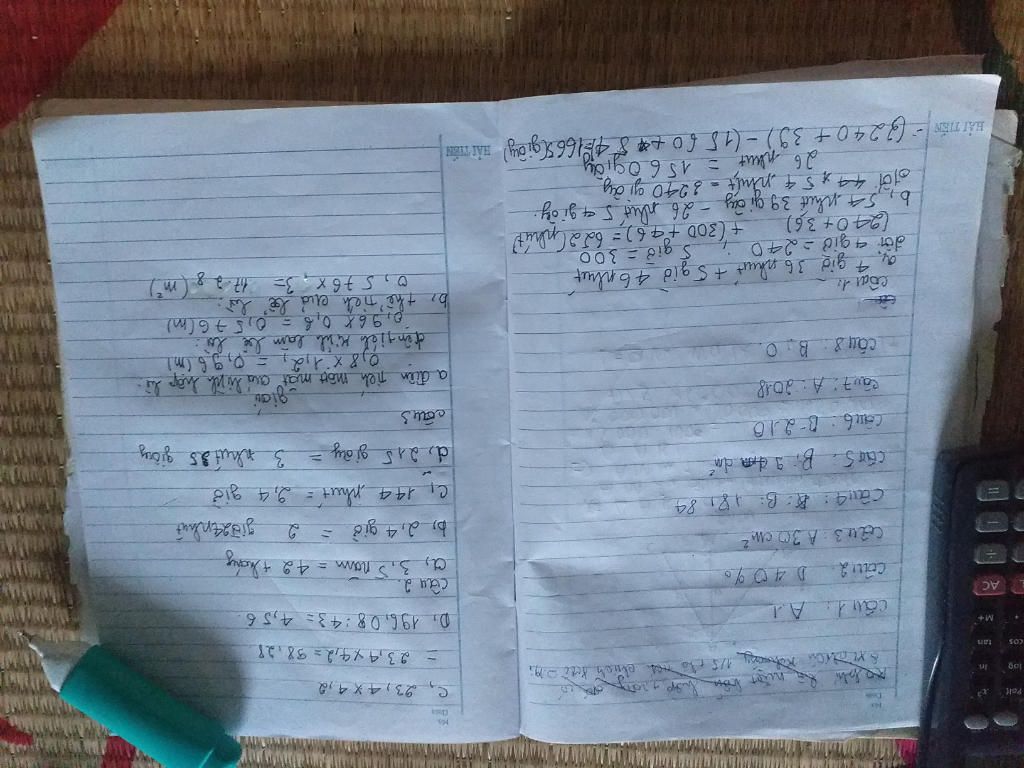 Câu 1: A.1
Câu 2. D 40%
Câu 3: A 30 cm²
Câu 4: B: 18,84
Câu 5: B: 9 dm²
Câu 6: B-210
Câu 7: A: 2018
Câu 8: B: 0
Câu 1,
a, 4 giờ 36 phút + 5 giờ 46 phút
đổi 4 giờ = 240 ; 5 giờ = 300
(240 + 36) + (300 + 46) = 622 (phút)
b, 54 phút 39 giây - 26 phút 54 giây.
đổi 54 phút = 3240 giây
26 phút = 1560 giây
HẢI TIẾN
C, 23,4 x 4,2
= 23,4 x 4,2 = 98,28
D, 196,08 : 43 = 4,56
câu 2.
a, 3,5 năm = 42 tháng
b, 2,4 giờ = 2 giờ 24 phút
C, 144 phút = 2,4 giờ
d, 215 giây = 3 phút 35 giây
câu 3
giải
0,8 x 1,2 = 0,96 (m)
0,96 x 0,6 = 0,576 (m)
b, thể tích của bể là:
0,576 x 3 = 1,728 (m²)
HẢI TIẾN
=
AC
M+
cos
tan
log
ln
x²